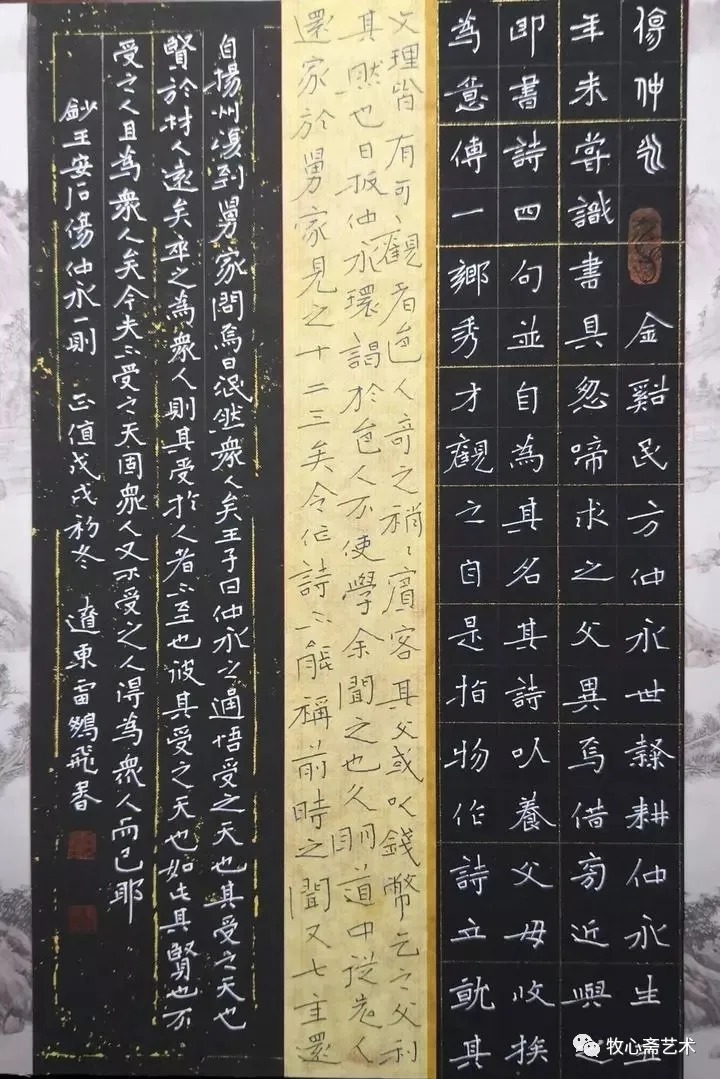 傷仲永 金谿民方仲永世隸耕仲永生五
年未嘗識書具忽啼求之父異焉借旁近與之
即書詩四句並自為其名其詩以養父母收族
為意傳一鄉秀才觀之自是指物作詩立就其
文理皆有可觀者邑人奇之稍〻賓客其父或以錢幣乞之父利
其然也日扳仲永環謁於邑人不使學余聞之也久明道中從先人
還家於舅家見之十二三矣令作詩不能稱前時之聞又七年還
自揚州復到舅家問焉曰泯然衆人矣王子曰仲永之通悟受之天也其受之天也
賢於材人遠矣卒之為衆人則其受於人者不至也彼其受之天也如此其賢也不
受之人且為衆人矣今夫不受之天固衆人又不受之人得為衆人而已耶
鈔王安石傷仲永一則 正值戊戌初冬 遼東雷
牧心斋艺术